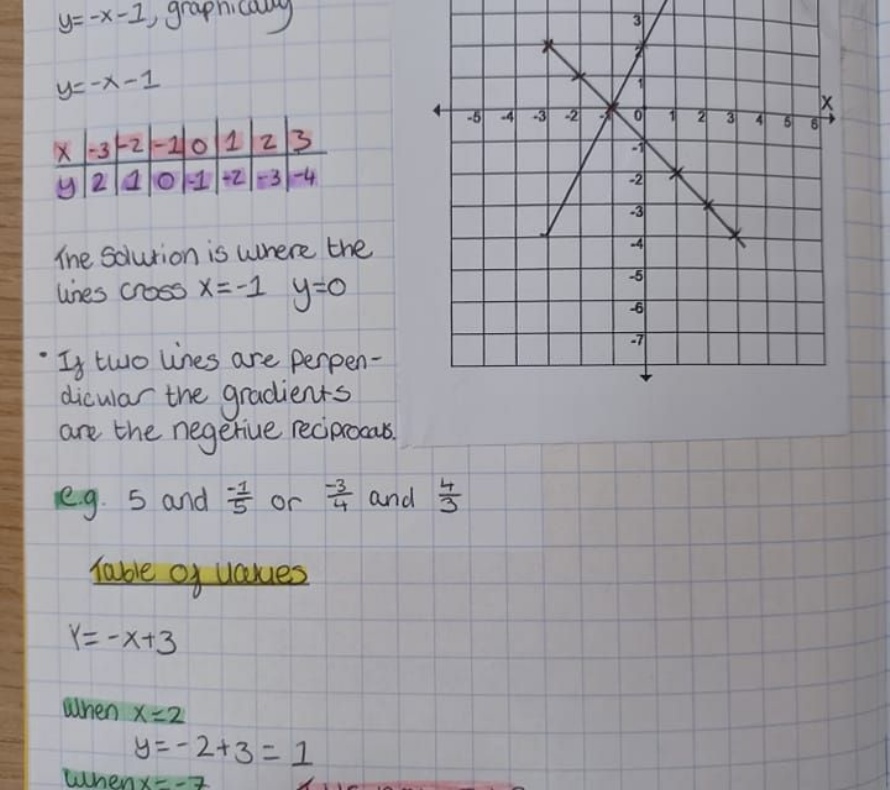 y=-x-1, graphically
y=-x-1
x -3 -2 -1 0 1 2 3
y 2 1 0 -1 -2 -3 -4
The solution is where the
lines cross x=-1 y=0
• If two lines are perpen-
dicular the gradients
are the negetive reciprocals.
e.g. 5 and -1/5 or -3/4 and 4/3
Table of values
Y=-x+3
When x=2
y=-2+3=1
When x=-7
3
2
1
-5 -4 -3 -2 -1 0 1 2 3 4 5 6 X
-1
-2
-3
-4
-5
-6
-7